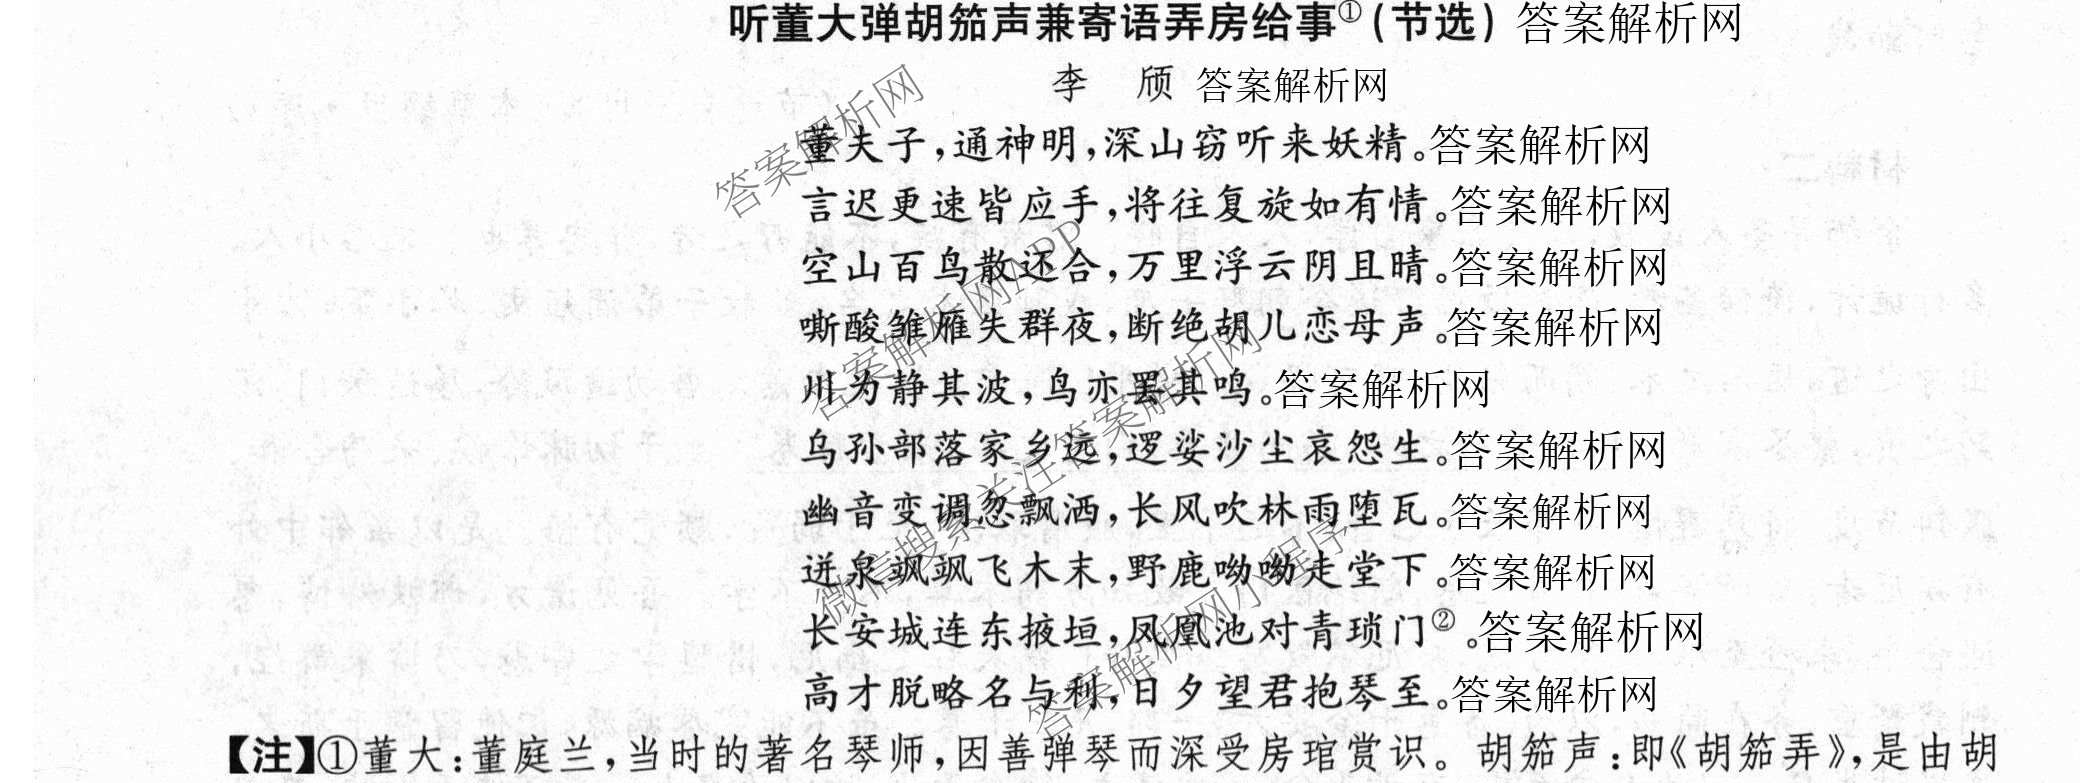 听董大弹胡笳声兼寄语弄房给事①(节选) 答案解析网
李 颀 答案解析网
董夫子,通神明,深山窃听来妖精。答案解析网
言迟更速皆应手,将往复旋如有情。答案解析网
空山百鸟散还合,万里浮云阴且晴。答案解析网
嘶酸雏雁失群夜,断绝胡儿恋母声。答案解析网
川为静其波,鸟亦罢其鸣。答案解析网
乌孙部落家乡远,逻娑沙尘哀怨生。答案解析网
幽音变调忽飘洒,长风吹林雨堕瓦。答案解析网
迸泉飒飒飞木末,野鹿呦呦走堂下。答案解析网
长安城连东掖垣,凤凰池对青琐门②。答案解析网
高才脱略名与利,日夕望君抱琴至。答案解析网
【注】①董大:董庭兰,当时的著名琴师,因善弹琴而深受房琯赏识。胡笳声:即《胡笳弄》,是由胡
答案解析网
答案解析网APP
微信搜索 关注答案解析网
答案解析网小程序